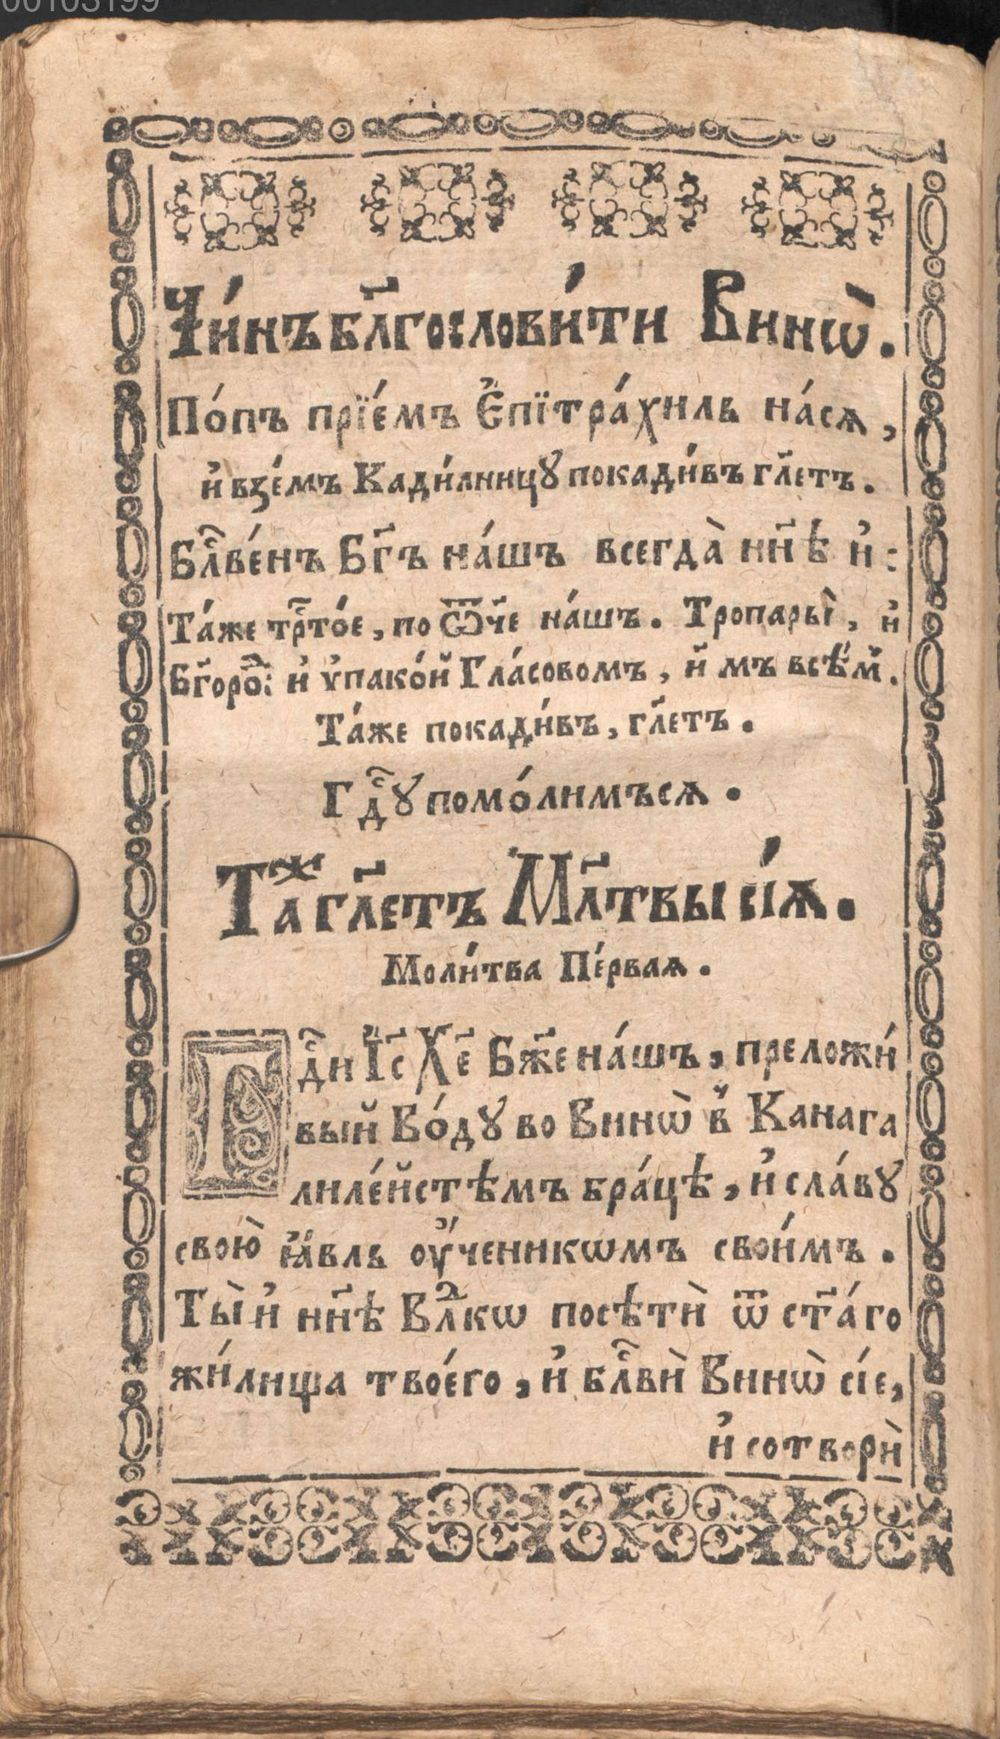 00103199
Чи́нъ бл҃гослови́ти Винѡ̀.
По́пъ прїе́мъ Е҆пїтра́хиль на́сѧ,
и҆ взе́мъ Кади́лницꙋ покади́въ гл҃етъ.
Блⷭ҇ве́нъ Бг҃ъ на́шъ всегда̀ нн҃ѣ и҆:
Та́же трⷭ҇то́е, по Ѿч҃е на́шъ. Тропарьѝ, и҆
Бг҃оро́ⷣ: и҆ ѵ҆пако́й Гла́совомъ, и҆ мъ всѣ́мⸯ.
Та́же покади́въ, гл҃етъ.
Гдⷭ҇ꙋ помо́лимъсѧ.
Таⷤ гл҃етъ Мл҃твы сі́ѧ.
Моли́тва Пе́рваѧ.
Гдⷭ҇и І҆с҃ Хе҃ Бж҃е на́шъ, преложи́
вый Во́дꙋ во Винѡ̀ в̾ Канага
лиле́йстѣмъ бра́цѣ, и҆ сла́вꙋ
свою̀ ꙗ҆́вль оу҆ченикѡмъ свои́мъ.
Ты̀ и҆ нн҃ѣ Влⷣкѡ посѣтѝ ѿ ст҃а́го
жи́лища твоего̀, и҆ блⷭ҇вѝ Винѡ̀ сі́е,
и҆ сотворѝ